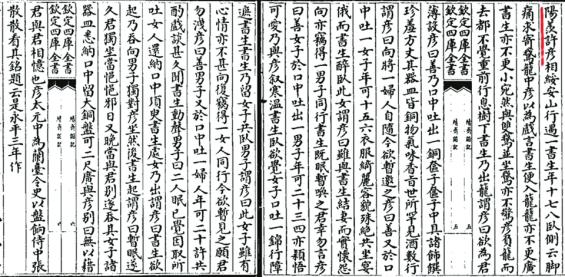 陽羨許彦相綏安山行遇一書生年十七八臥側云脚
痛求寄鵝籠中彦以為戲言書生便入籠籠亦不更廣
書生亦不更小宛然與雙鵝並坐鵝亦不驚彦負籠而
去都不覺重前行息樹下書生乃出籠謂彦曰欲為君
欽定四庫全書 續齊諧記 五
欽定四庫全書 續齊諧記 五
薄設彦曰善乃口中吐出一銅奩子奩子中具諸饌殽
珍羞方丈其器皿皆銅物氣味香旨世所罕見酒數行
謂彦曰向將一婦人自隨今欲暫邀之彦曰善又於口
中吐一女子年可十五六衣服綺麗容貌殊絶共坐宴
俄而書生醉臥此女謂彦曰雖與書生結妻而實懷怨
向亦竊得一男子同行書生既眠暫喚之君幸勿言彦
曰善女子於口中吐出一男子年可二十三四亦穎悟
可愛乃與彦叙寒温書生臥欲覺女子口吐一錦行障
遮書生書生乃留女子共臥男子謂彦曰此女子雖有
心情亦不甚向復竊得一女人同行今欲暫見之願君
勿洩彦曰善男子又於口中吐一婦人年可二十許共
酌戲談甚久聞書生動聲男子曰二人眠已覺因取所
吐女人還納口中須臾書生處女乃出謂彦曰書生欲
起乃吞向男子獨對彦坐然後書生起謂彦曰暫眠遂
久君獨坐當悒悒邪日又晚當與君别遂吞其女子諸
器皿悉納口中留大銅盤可二尺廣與彦别曰無以藉
欽定四庫全書 續齊諧記 六
欽定四庫全書 續齊諧記 六
君與君相憶也彦太元中為蘭臺令史以盤餉侍中張
散散看其銘題云是永平三年作